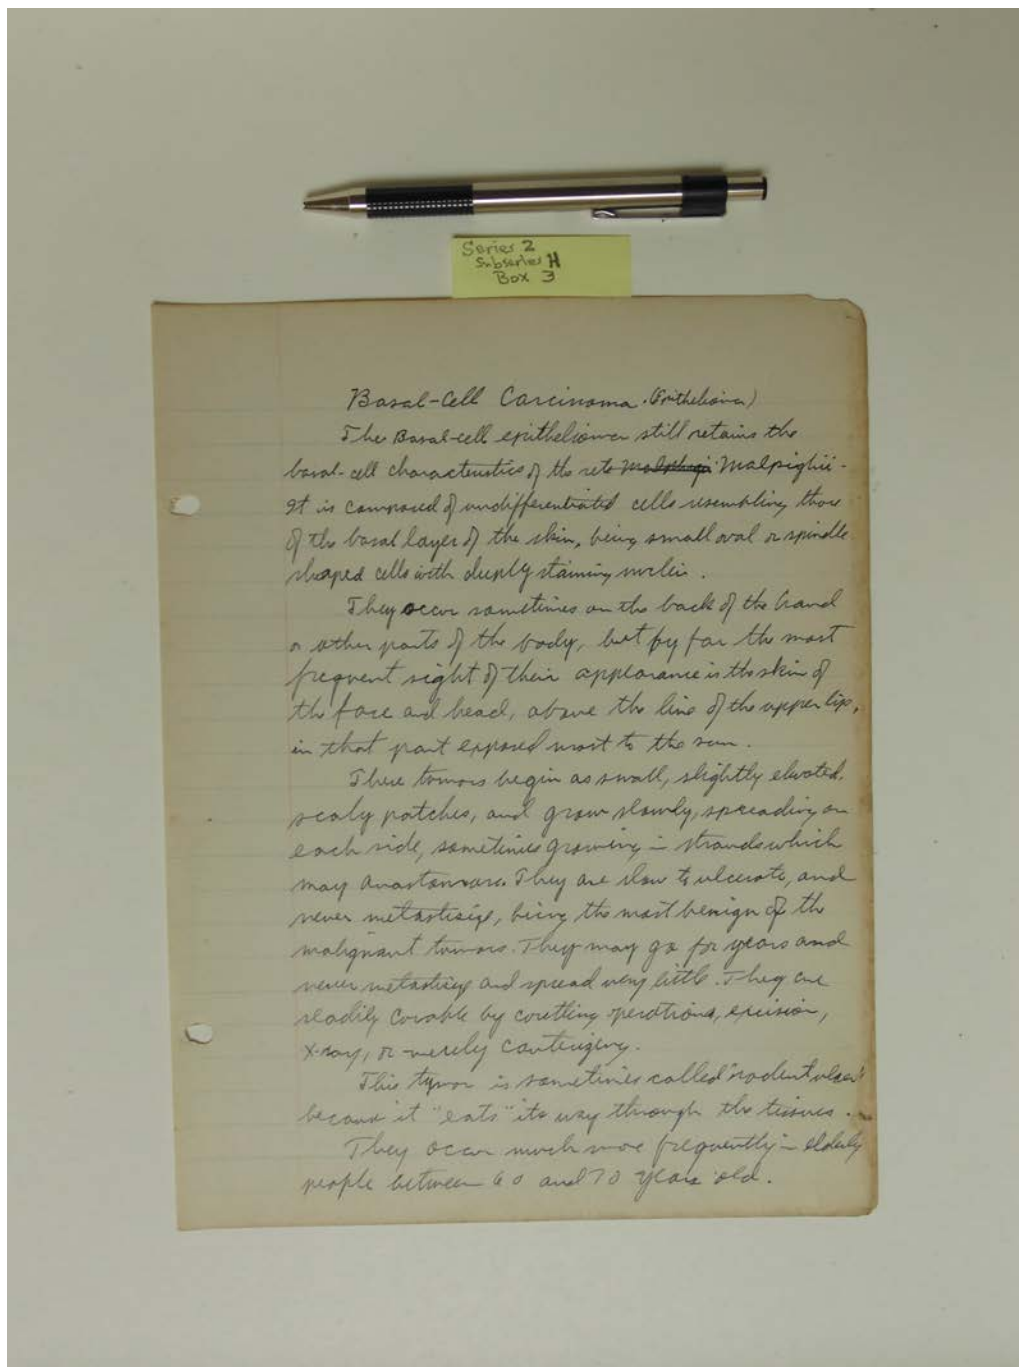 Series 2
Subseries H
Box 3
Basal-Cell Carcinoma. (Epithelioma)
The Basal-cell epithelioma still retains the
basal-cell characteristics of the rete Malpighii.
It is composed of undifferentiated cells resembling those
of the basal layer of the skin, being small oval or spindle
shaped cells with deeply staining nuclei.
They occur sometimes on the back of the hand
or other parts of the body, but by far the most
frequent sight of their appearance is the skin of
the face and head, above the line of the upper lip,
in that part exposed most to the sun.
These tumors begin as small, slightly elevated,
scaly patches, and grow slowly, spreading on
each side, sometimes growing in strands which
may anastomose. They are slow to ulcerate, and
never metastisize, being the most benign of the
malignant tumors. They may go for years and
never metastisize and spread very little. They are
readily curable by curetting operations, excision,
X-ray, or merely cauterizing.
This tumor is sometimes called "rodent ulcer"
because it "eats" its way through the tissues.
They occur much more frequently in elderly
people between 60 and 70 years old.